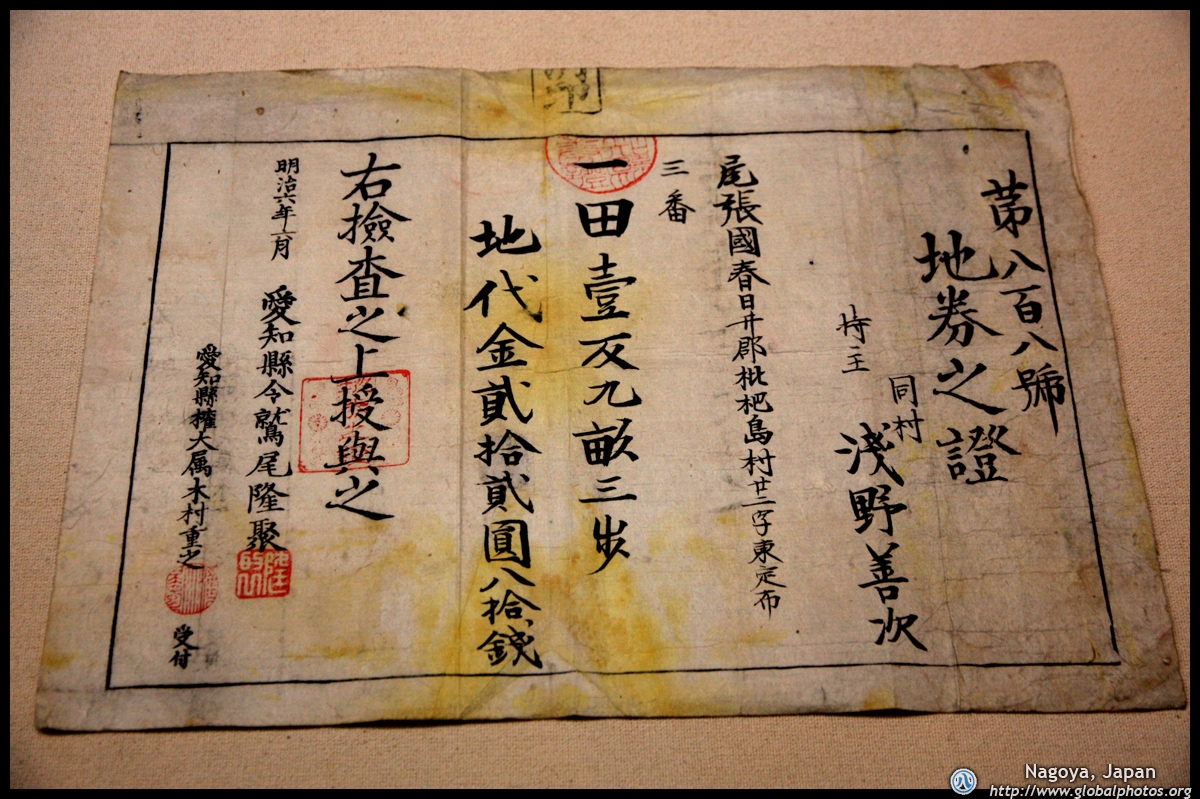 第八百八號
地券之證
持主
同村
淺野善次
尾張國春日井郡枇杷島村廿二字東定布
三番
一田壹反九畝三歩
地代金貳拾貳圓八拾錢
右撿査之上授與之
明治六年六月
愛知縣令鷲尾隆聚
愛知縣權大属木村重之
受付
Nagoya, Japan
http://www.globalphotos.org